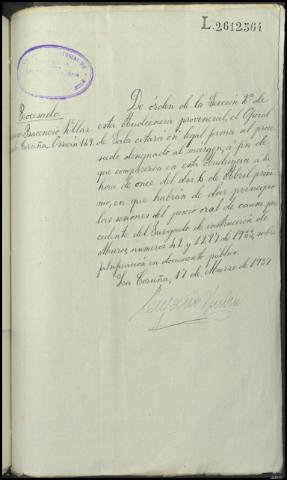 L.2612564
Procesado
De órden de la Sección 2ª de
esta Audiencia provincial, el Oficial
Coruña, Orzán 149. de Sala citará en legal forma al proce-
sado designado al margen, a fin de
que comparezca en esta Audiencia a la
hora de once del día 6 de Abril próxi-
mo, en que habrán de dar principio
las sesiones del juicio oral de causa pro-
cedente del Juzgado de instrucción de
Muros, números 42 y 1227 de 1932, sobre
falsificación en documento público.
La Coruña, 17 de Marzo de 1937